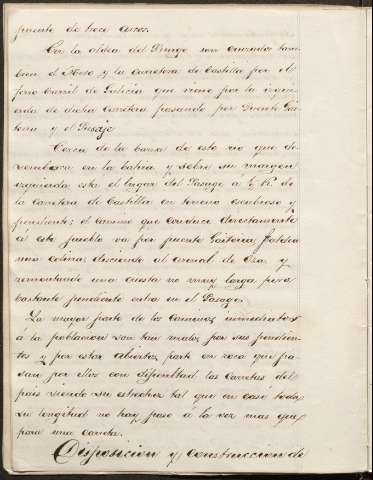 puente de trece arcos.
Por la aldea del Burgo son cruzados tam-
bien el Mero y la Carretera de Castilla por el
ferro Carril de Galicia que viene por la izqui-
erda de dicha Carretera pasando por Puente Gai-
teira y el Pasaje
Cerca de la barra de este rio que de-
semboca en la bahia y sobre su margen
izquierda esta el lugar del Pasage á ½ K. de
la carretera de Castilla en terreno escabroso y
pendiente; el camino que conduce directamente
á este pueblo va por puente Gaiteira
una colina; desciende al arenal de Oza y
remontando una cuesta no muy larga pero
bastante pendiente entra en el Pasage.
La mayor parte de los Caminos inmediatos
á la poblacion son tan malos por sus pendien-
tes y por estar abiertos parte en roca que pa-
san por ellos con dificultad las Carretas del
pais siendo su estrechez tal que en casi toda
su longitud no hay paso á la vez mas que
para una carreta.
Disposicion y construccion de